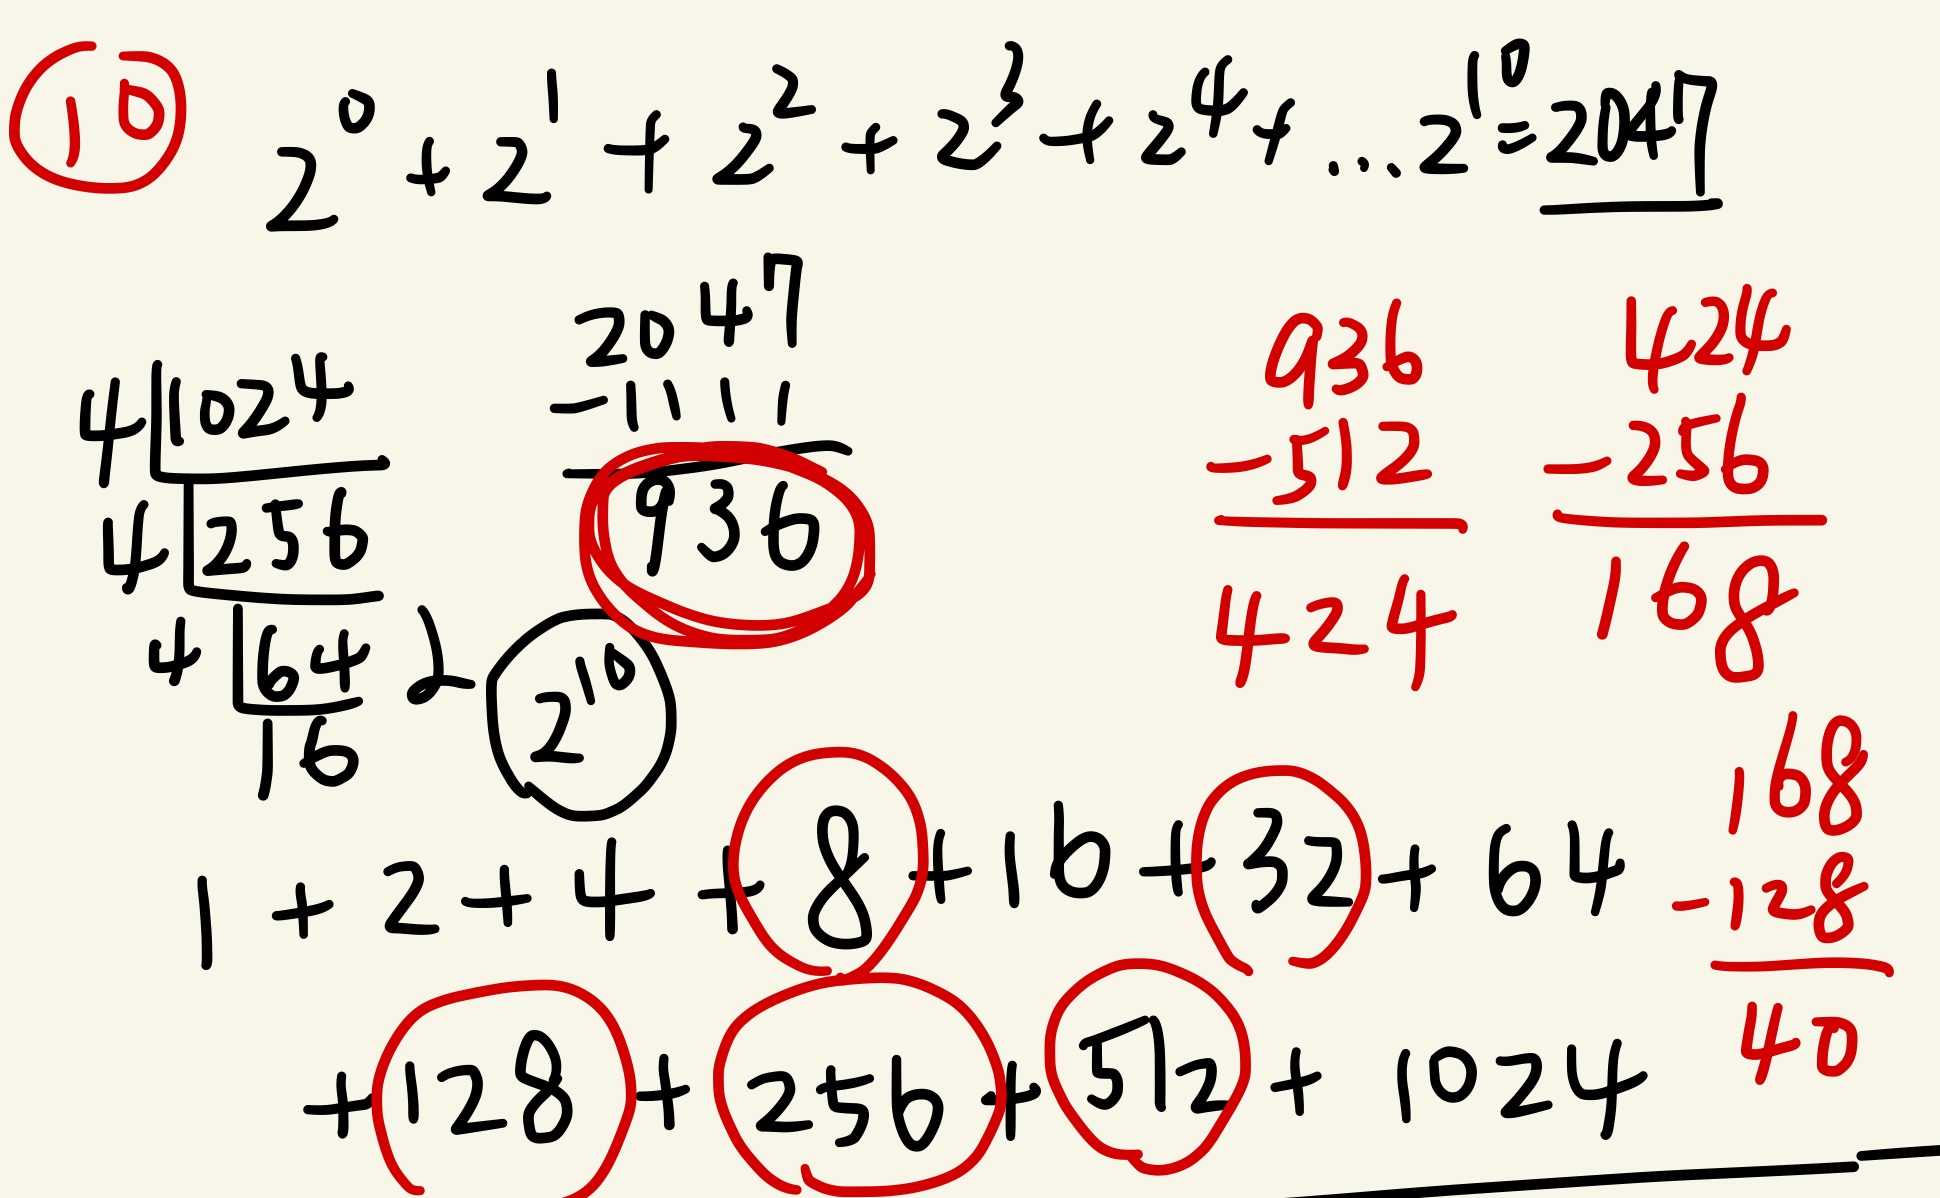 10
2⁰ + 2¹ + 2² + 2³ + 2⁴ + ... 2¹⁰ = 2047
4 | 1024
4 | 256
4 | 64
16
2¹⁰
2047
- 1111
936
936
- 512
424
424
- 256
168
168
- 128
40
1 + 2 + 4 + 8 + 16 + 32 + 64
+ 128 + 256 + 512 + 1024